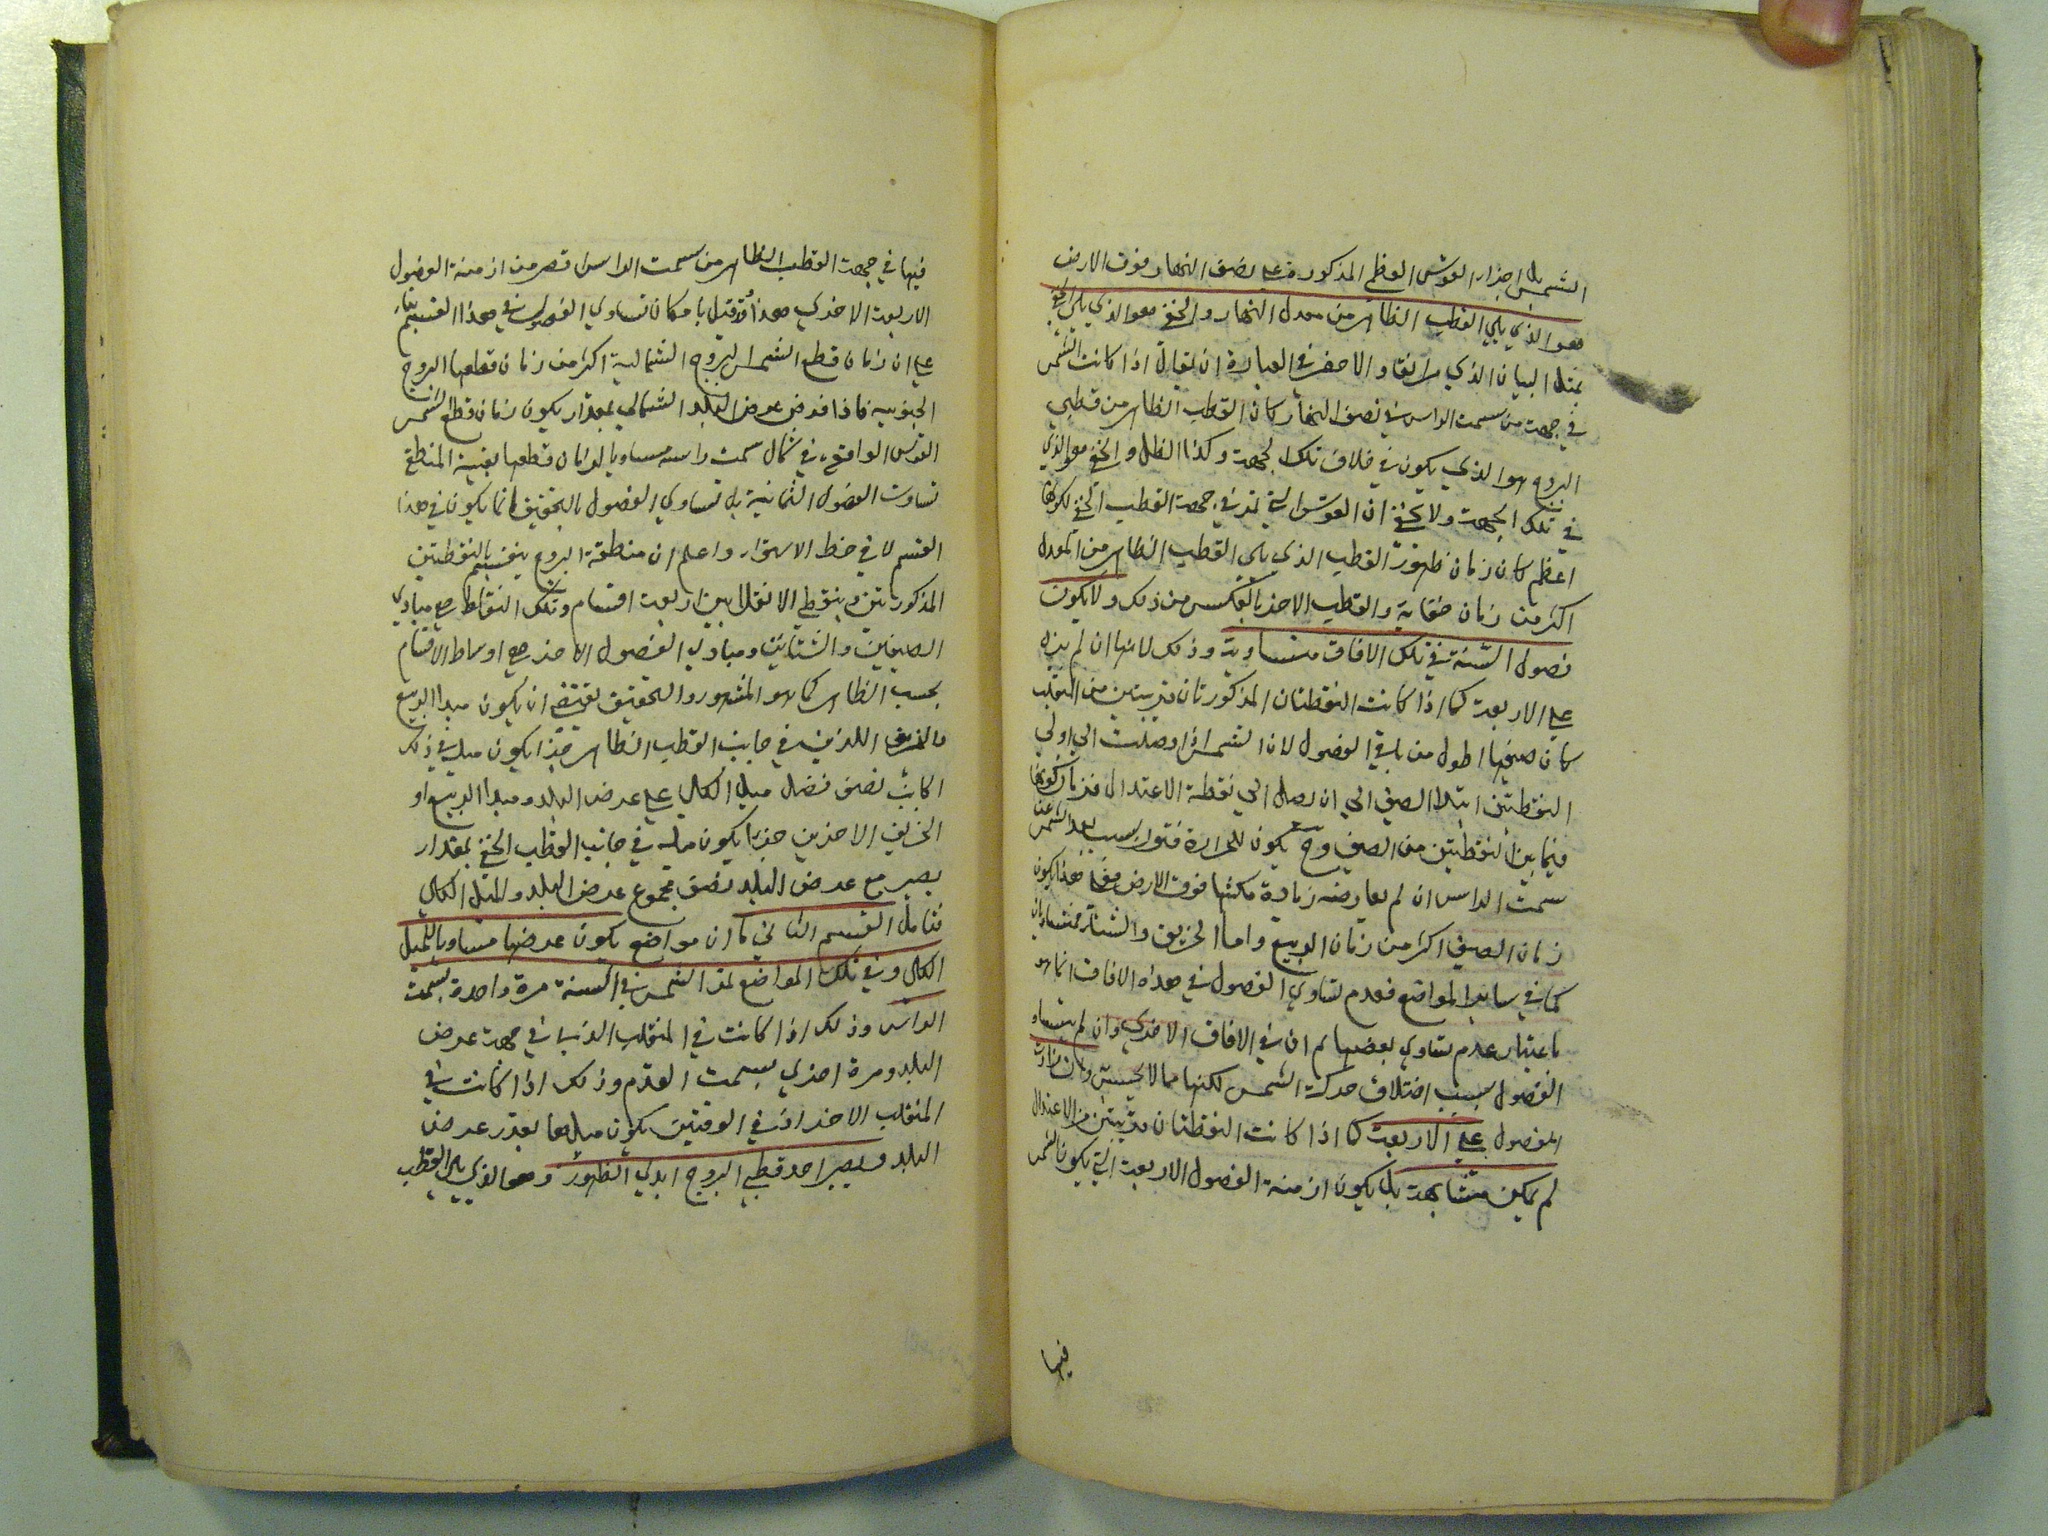 الشمس بل اجزاء القوس العظمى المذكورة على نصف النهار فوق الارض
هو الذي يلي القطب الظاهر من معدل النهار والخفي هو الذي يلي الخفي
بمثل البيان الذي مر انفا والاخصر في العبارة ان يقال اذا كانت الشمس
في جهة من سمت الراس في نصف النهار كان القطب الظاهر من قطبي
البروج هو الذي يكون في خلاف تلك الجهة وكذا الظل والخفي هو الذي
في تلك الجهة ولا يخفى ان القوس التي تمر في جهة القطب الخفي لكونها
اعظم كان زمان ظهور القطب الذي يلي القطب الظاهر من المعدل
اكثر من زمان خفائه والقطب الاخر بالعكس من ذلك ولا يكون
فصول السنة في تلك الافاق متساوية وذلك لانها ان لم يزد
على الاربعة كما اذا كانت النقطتان المذكورتان قريبتين من المنقلب
كان صيفها اطول من باقي الفصول لان الشمس اذا وصلت الى اولى
النقطتين ابتدا الصيف الى ان يصل الى نقطة الاعتدال فزمان كونها
فيما بين النقطتين من الصيف وح يكون للحرارة فتور بسبب بعد الشمس عن
سمت الراس ان لم يعارضه زيادة مكثها فوق الارض فعلى هذا يكون
زمان الصيف اكثر من زمان الربيع واما الخريف والشتاء فمتساويان
كما في ساير المواضع فعدم تساوي الفصول في هذه الافاق انما هو
باعتبار عدم تساوي بعضها ثم ان في الافاق الاخرى وان لم يتساو
الفصول بسبب اختلاف حركة الشمس لكنها مما لا يحس وان زادت
الفصول على الاربعة كما اذا كانت النقطتان قريبتين من الاعتدال
لم يكن متشابهة بل يكون ازمنة الفصول الاربعة التي يكون الشمس
فيها
فيها في جهة القطب الظاهر من سمت الراس اقصر من ازمنة الفصول
الاربعة الاخرى هذا وقد قيل بامكان تساوي الفصول في هذا القسم بناء
على ان زمان قطع الشمس البروج الشمالية اكثر من زمان قطعها البروج
الجنوبية فاذا فرض عرض البلد الشمالي بمقدار يكون زمان قطع الشمس
القوس الواقعة في شمال سمت راسه مساويا لزمان قطعها بقية المنطقة
تساوت الفصول الثمانية بل تساوي الفصول بالتحقيق انما يكون في هذا
القسم لا في خط الاستواء واعلم ان منطقة البروج ينقسم بالنقطتين
المذكورتين وبنقطتي الانقلابين اربعة اقسام وتلك النقاط هي مبادي
الصيفين والشتائين ومبادي الفصول الاخر هي اوساط الاقسام
بحسب الظاهر كما هو المشهور والتحقيق يقتضي ان يكون مبدا الربيع
والخريف اللذين في جانب القطب الظاهر جزءا يكون ميله في ذلك
الجانب نصف فضل ميل الكلي على عرض البلد ومبدا الربيع او
الخريف الاخرين جزءا يكون ميله في جانب القطب الخفي بمقدار
يصير مع عرض البلد نصف مجموع عرض البلد والميل الكلي
فتامل القسم الثاني ما ان مواضع يكون عرضها مساويا للميل
الكلي وفي تلك المواضع تمر الشمس في السنة مرة واحدة بسمت
الراس وذلك اذا كانت في المنقلب الذي في جهة عرض
البلد ومرة اخرى بسمت القدم وذلك اذا كانت في
المنقلب الاخر اذ في الوقتين يكون ميلها بقدر عرض
البلد ويصير احد قطبي البروج ابدي الظهور وهو الذي يلي القطب